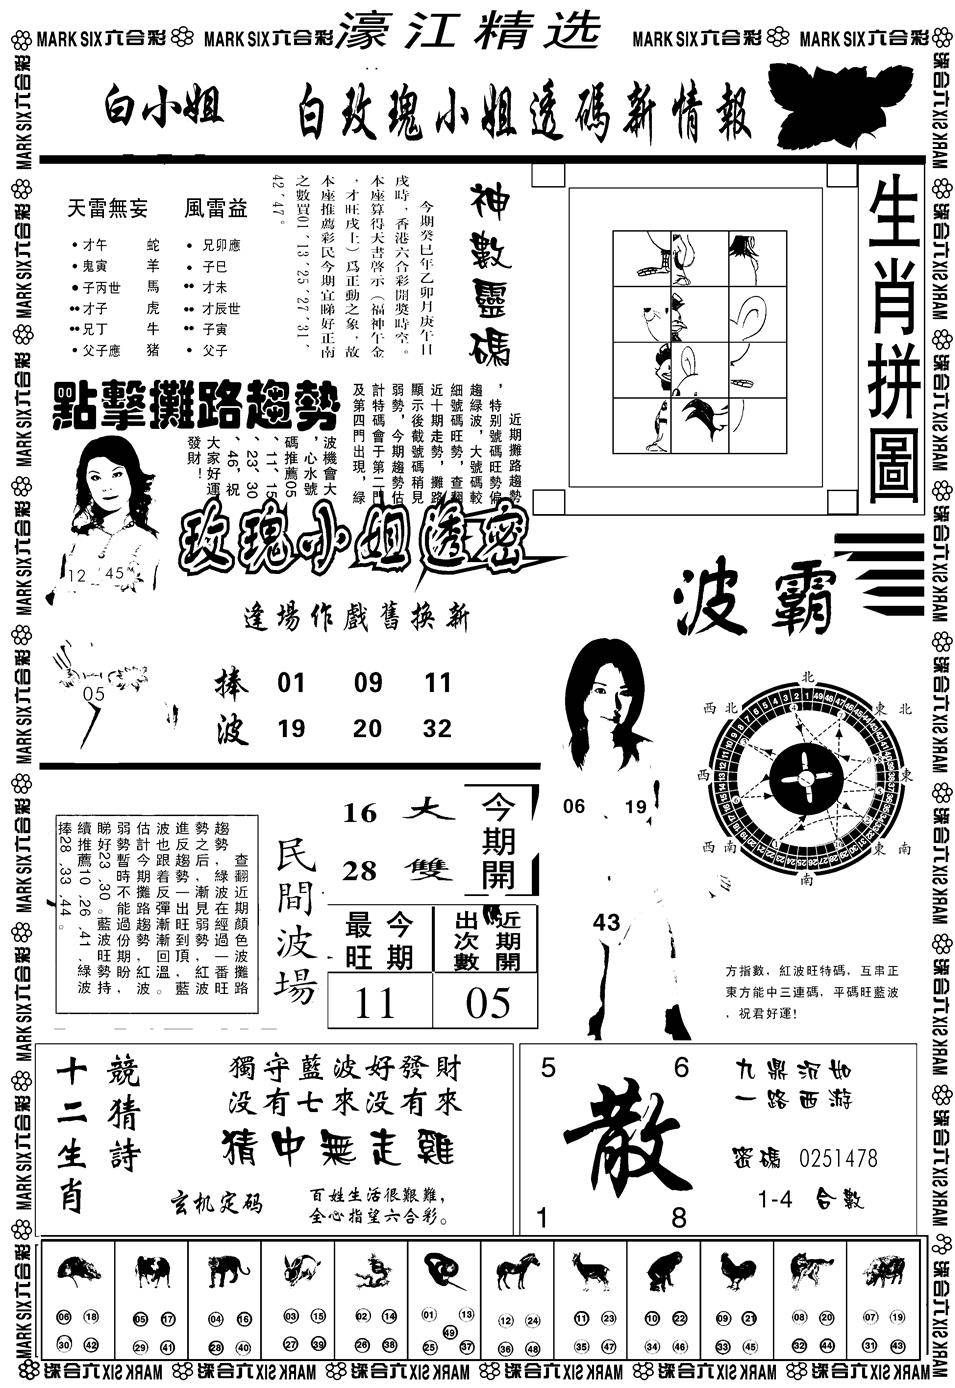 MARK SIX六合彩
MARK SIX六合彩
濠江精选
MARK SIX六合彩
MARK SIX六合彩
白小姐
白玫瑰小姐透碼新情報
天雷無妄
風雷益
·才午 蛇
·鬼寅 羊
●子丙世 馬
••才子 虎
••兄丁 牛
·父子應 猪
·兄卯應
·子巳
••才未
••才辰世
••子寅
·父子
神數靈碼
今期癸巳年乙卯月庚午日
戌時，香港六合彩開獎時空。
本座算得天書啓示（福神午金
，才旺戌上）爲正動之象，故
本座推薦彩民今期宜睇好正南
之數買01′13′25′27′31′
42′47。
生肖拼圖
點擊攤路趨勢
近期攤路趨勢
，特别號碼旺勢偏
趨綠波，大號碼較
細號碼旺勢，查翻
近十期走勢，攤路
顯示後截號碼稍見
弱勢，今期趨勢估
計特碼會于第二門
及第四門出現，綠
波機會大
，心水號
碼推薦05
、11、15
、23、30
、46，祝
大家好運
發財！
12 45
05
玫瑰小姐透密
逢場作戲舊換新
捧 01 09 11
波 19 20 32
波霸
北
西北
東北
西
東
西南
東南
南
06 19
43
方指數，紅波旺特碼，互串正
東方能中三連碼，平碼旺藍波
，祝君好運！
查翻近期顔色波攤路
趨勢，綠波在經過一番旺
勢之后，漸見弱勢，紅波
進反趨勢一出旺到頂，藍
波也跟着反彈漸漸回溫。
估計今期攤路趨勢紅波
弱勢暫時不能過份期盼，
睇好23、30。藍波旺勢持
續推薦10、26、41、綠波
捧28、33、44。
民間波場
16 大
28 雙
今期開
今期最旺
近期開出次數
11
05
十二生肖
競猜詩
獨守藍波好發財
没有七來没有來
猜中無走雞
玄机定码
百姓生活很艱難，
全心指望六合彩。
5 6
散
1 8
九鼎沉如
一路西游
密碼 0251478
1-4 合數
06 18 05 17 04 16 03 15 02 14 01 13 12 24 11 23 10 22 09 21 08 20 07 19
49
30 42 29 41 28 40 27 39 26 38 25 37 36 48 35 47 34 46 33 45 32 44 31 43
MARK SIX六合彩
MARK SIX六合彩
MARK SIX六合彩
MARK SIX六合彩
MARK SIX六合彩
MARK SIX六合彩